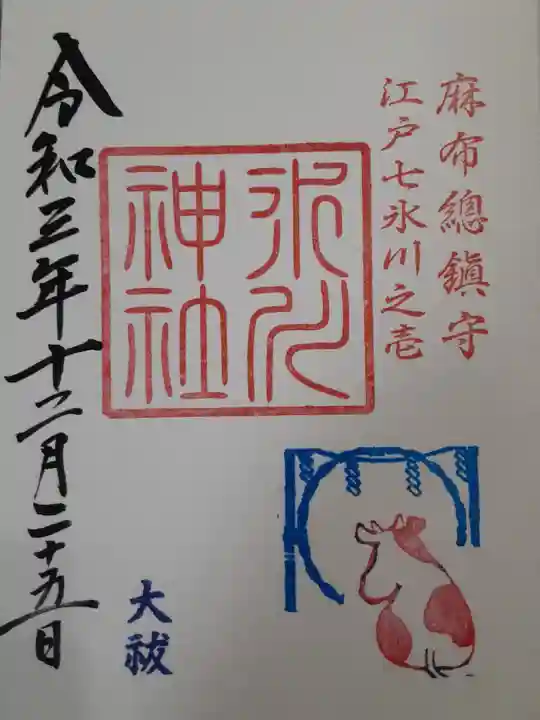 麻布總鎮守
江戸七氷川之壱
氷川
神社
大祓
令和三年十二月二十五日